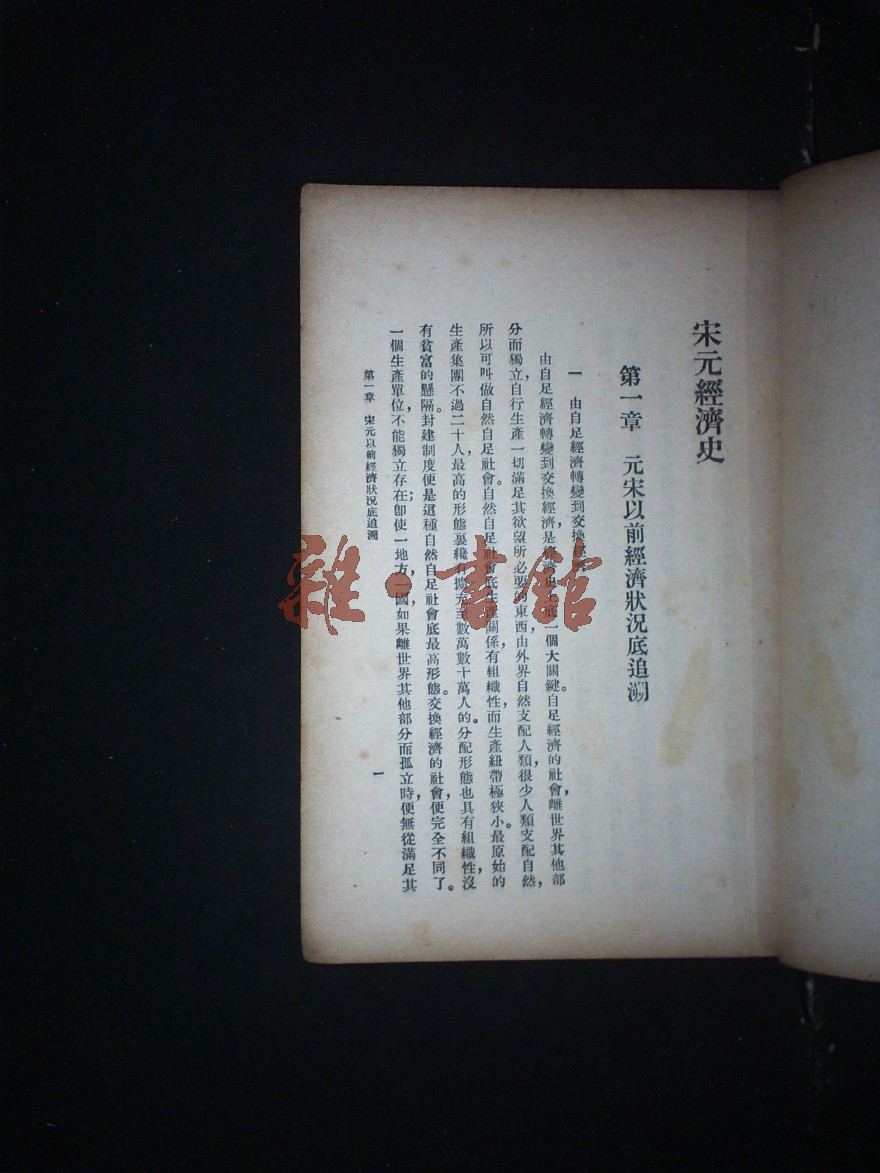 宋元經濟史
第一章 元宋以前經濟狀況底追溯
一 由自足經濟轉變到交換經濟
由自足經濟轉變到交換經濟，是經濟史上底一個大關鍵。自足經濟的社會，離世界其他部
分而獨立，自行生產一切滿足其欲望所必要的東西，由外界自然支配人類，很少人類支配自然，
所以可叫做自然自足社會。自然自足社會底生產關係有組織性，而生產紐帶極狹小。最原始的
生產集團不過二十人，最高的形態裏纔有擴充至數萬數十萬人的。分配形態也具有組織性，沒
有貧富的懸隔。封建制度便是這種自然自足社會底最高形態。交換經濟的社會，便完全不同了。
一個生產單位，不能獨立存在；卽使一地方，一國，如果離世界其他部分而孤立時，便無從滿足其
第一章 宋元以前經濟狀況底追溯
一
雜·書館